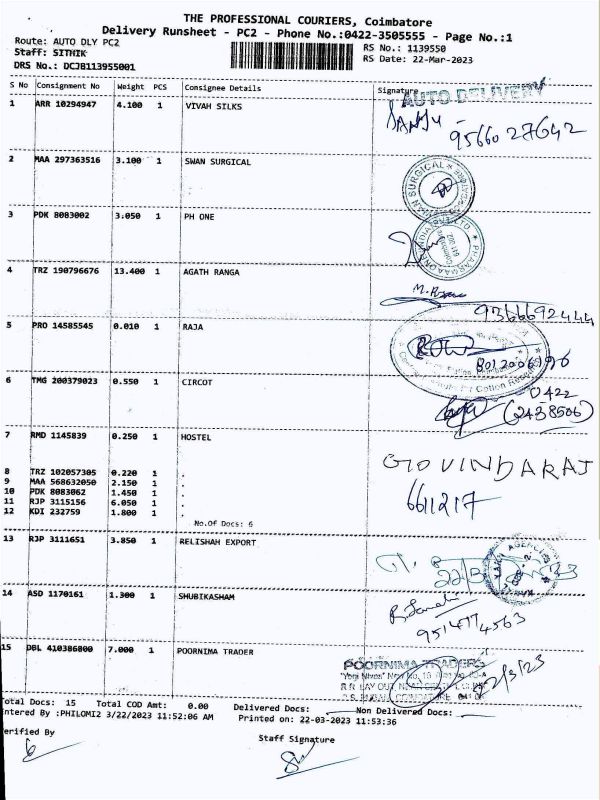 THE PROFESSIONAL COURIERS, Coimbatore
Delivery Runsheet - PC2 - Phone No.:0422-3505555 - Page No.:1
Route: AUTO DLY PC2 RS No.: 1139550
Staff: SITHIK RS Date: 22-Mar-2023
DRS No.: DCJB113955001
S No Consignment No Weight PCS Consignee Details Signature
AUTO DELIVERY
1 ARR 10294947 4.100 1 VIVAH SILKS
9566027642
2 MAA 297363516 3.100 1 SWAN SURGICAL
SWAN SURGICAL
3 PDK 8083002 3.050 1 PH ONE
Coimbatore
641 002
4 TRZ 190796676 13.400 1 AGATH RANGA
9366692444
5 PRO 14585545 0.010 1 RAJA
for Cotton
6 TMG 200379023 0.550 1 CIRCOT
0422
(2438506)
7 RMD 1145839 0.250 1 HOSTEL
GOVINDARAJ
8 TRZ 102057305 0.220 1 .
9 MAA 568632050 2.150 1 .
10 PDK 8083062 1.450 1 .
11 RJP 3115156 6.050 1 .
12 KDI 232759 1.800 1 .
6611217
No.Of Docs: 6
13 RJP 3111651 3.850 1 RELISHAH EXPORT
14 ASD 1170161 1.300 1 SHUBIKASHAM
15 DBL 410386800 7.000 1 POORNIMA TRADER
POORNIMA TRADERS
Total Docs: 15 Total COD Amt: 0.00 Delivered Docs: Non Delivered Docs:
ntered By :PHILOMI2 3/22/2023 11:52:06 AM Printed on: 22-03-2023 11:53:36
erified By Staff Signature